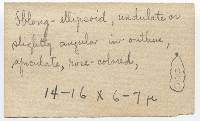 Oblong-ellipsoid, undulate or
slightly angular in outline,
apiculate, rose-colored,
14-16 X 6-7 µ